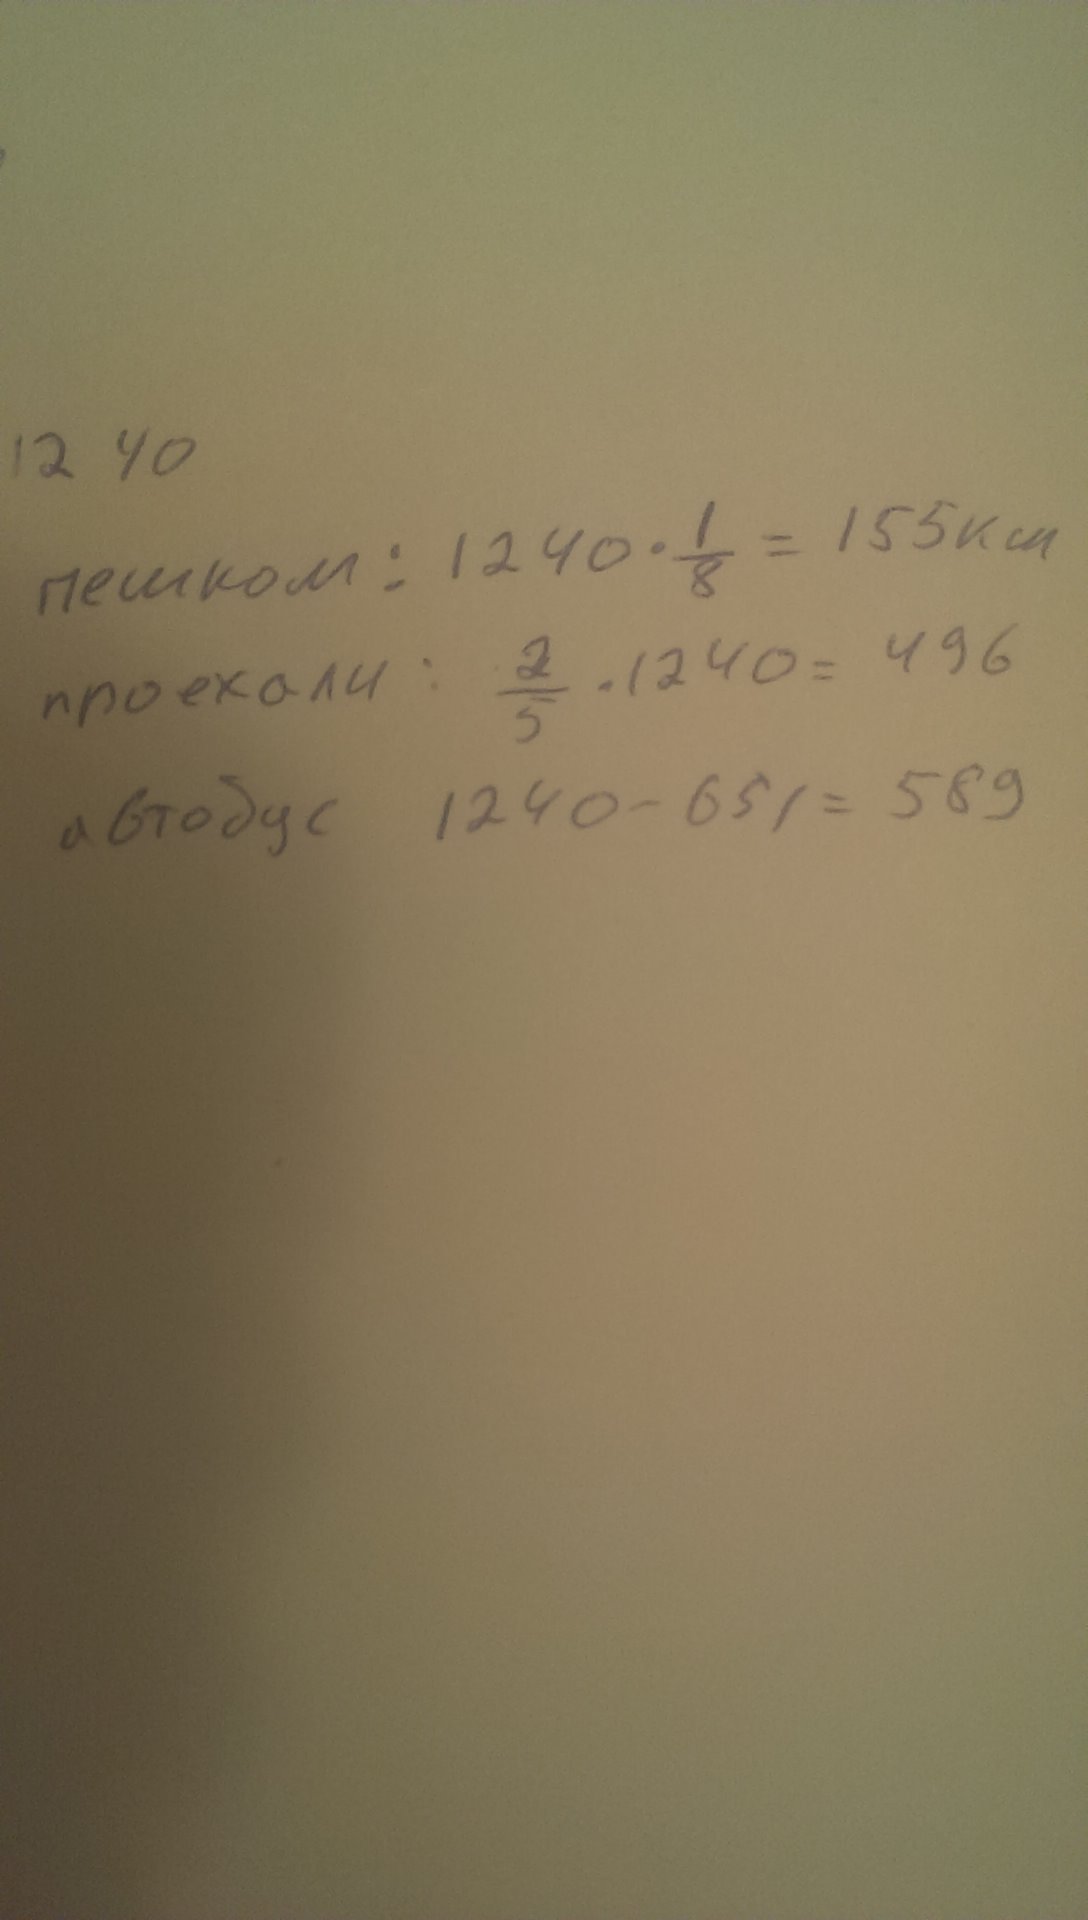 1240
пешком: 1240 · 1/8 = 155км
проехали: 2/5 · 1240 = 496
автобус 1240 - 651 = 589